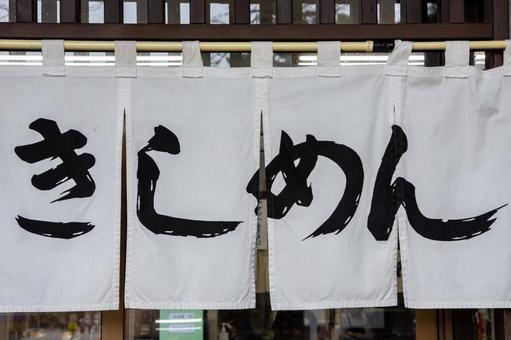 きしめん